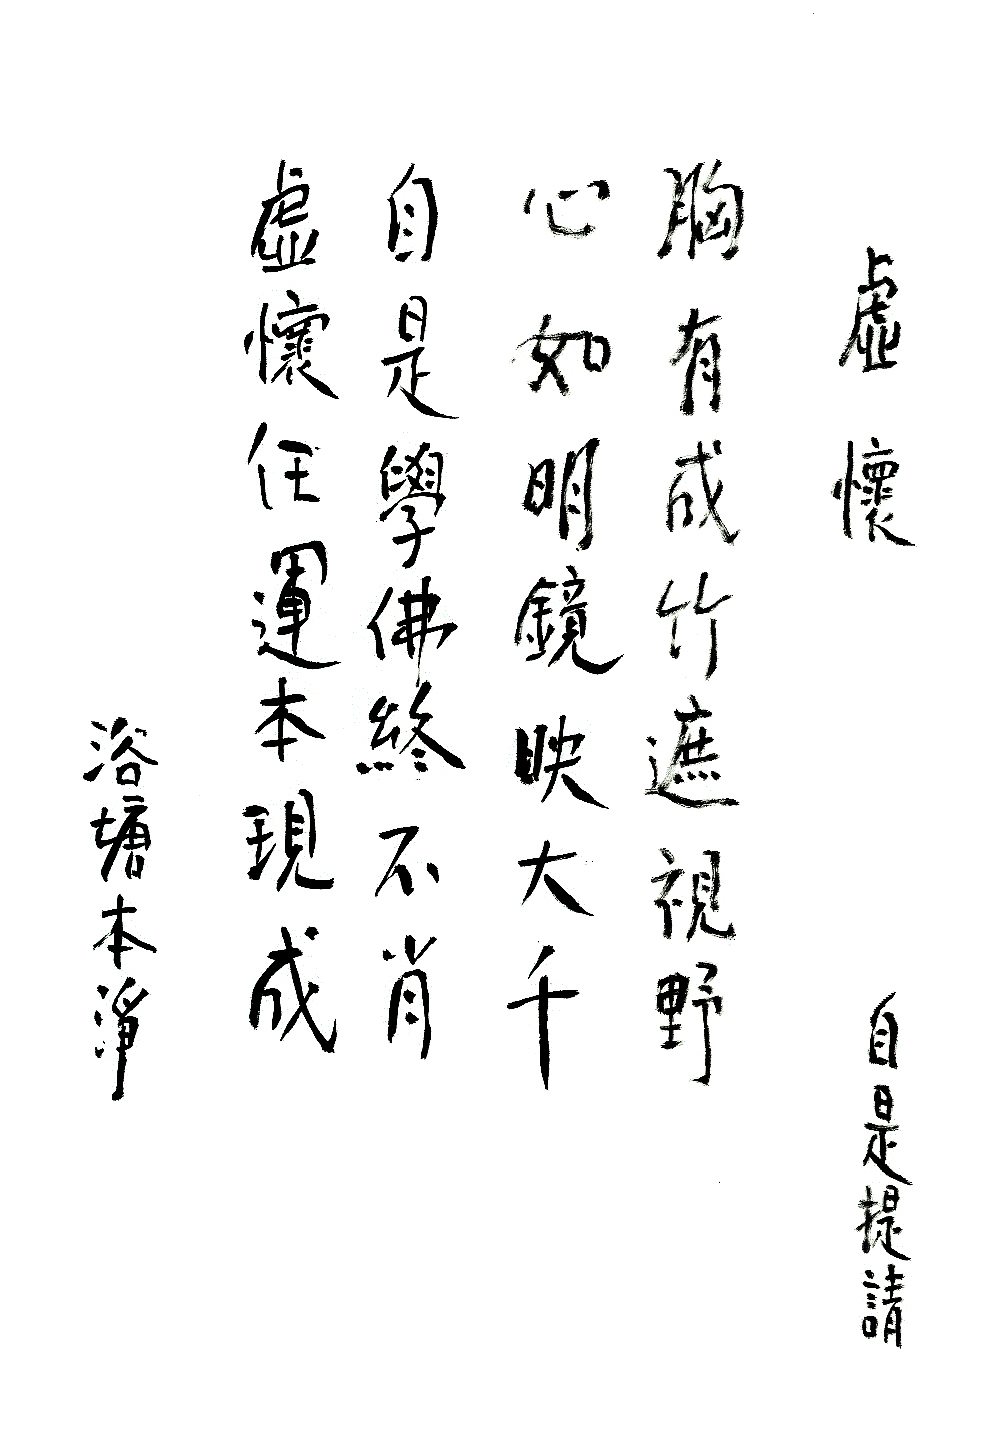 虛懷
自是提請
胸有成竹遮視野
心如明鏡映大千
自是學佛終不肖
虛懷任運本現成
浴塘本淨